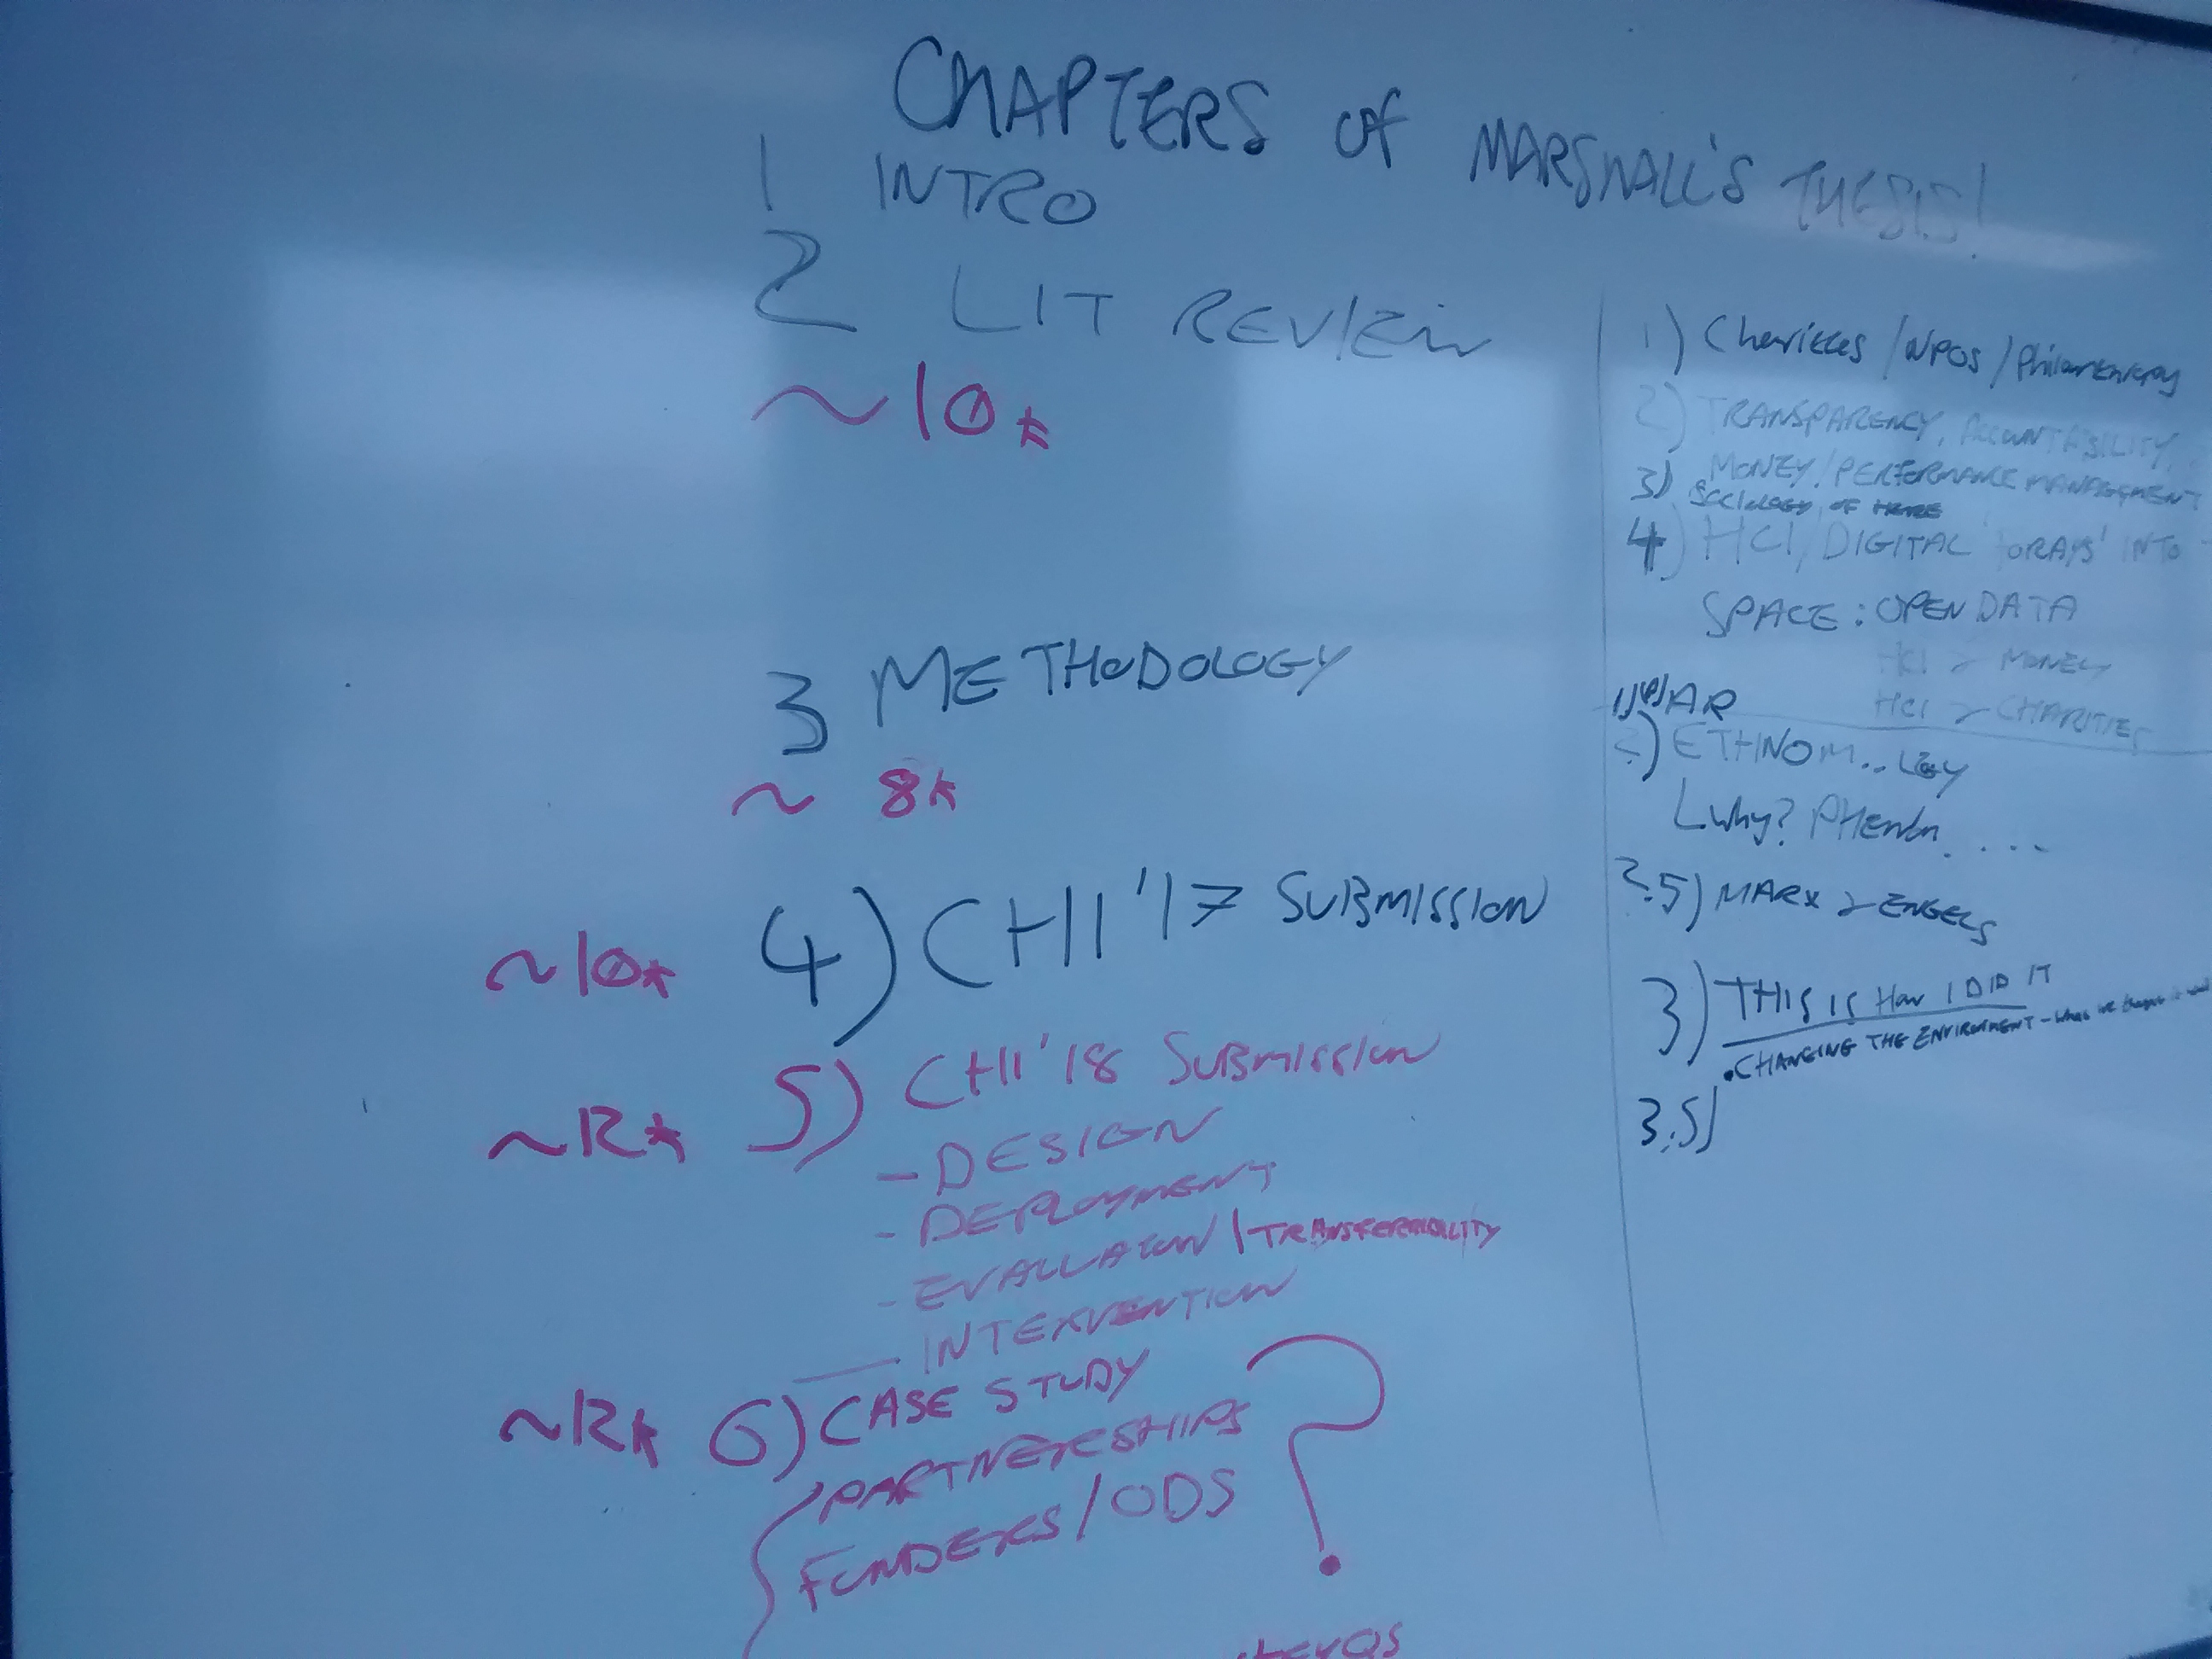 CHAPTERS OF MARSHALL'S THESIS!
1 INTRO
2 LIT REVIEW
~10k
3 METHODOLOGY
~ 8k
~10k 4) CHI'17 SUBMISSION
~12k 5) CHI'18 SUBMISSION
- DESIGN
- DEPLOYMENT
- EVALUATION / TRANSFERABILITY
INTERVENTION
~12k 6) CASE STUDY
PARTNERSHIPS
FUNDERS/ODS
?
1) Charities/NPOS/Philanthropy
2) TRANSPARENCY, ACCOUNTABILITY,
3) MONEY/PERFORMANCE MANAGEMENT
SOCIOLOGY OF
4) HCI/DIGITAL 'FORAYS' INTO
SPACE: OPEN DATA
HCI & MONEY
HCI & CHARITIES
1) PAR
2.) ETHNOM..LGY
Why? PHENOM....
2.5) MARX & ENGELS
3) THIS IS How I DID IT
• CHANGING THE ENVIRONMENT - what we thought it
3.5)